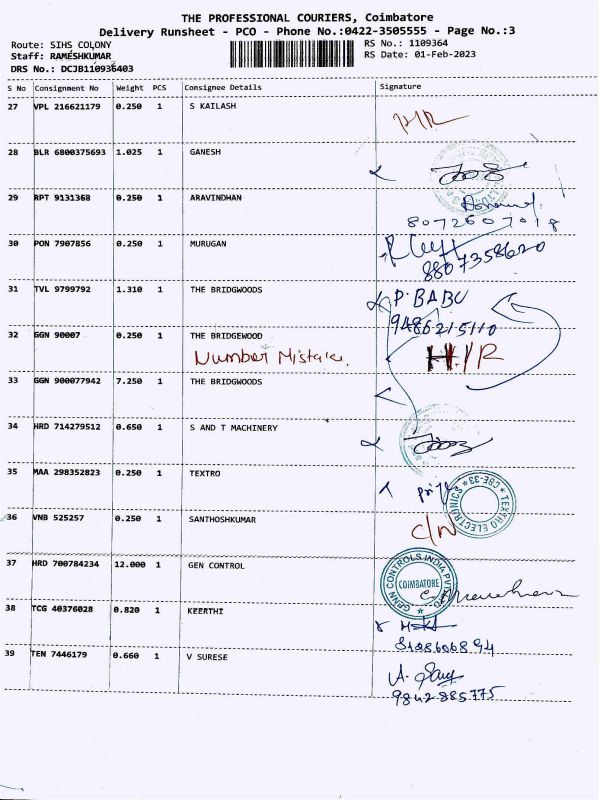 THE PROFESSIONAL COURIERS, Coimbatore
Delivery Runsheet - PCO - Phone No.:0422-3505555 - Page No.:3
Route: SIHS COLONY
RS No.: 1109364
Staff: RAMESHKUMAR
RS Date: 01-Feb-2023
DRS No.: DCJB110936403
S No Consignment No Weight PCS Consignee Details Signature
27 VPL 216621179 0.250 1 S KAILASH H/R
28 BLR 6800375693 1.025 1 GANESH
29 RPT 9131368 0.250 1 ARAVINDHAN
8072607018
30 PON 7907856 0.250 1 MURUGAN
8807358620
31 TVL 9799792 1.310 1 THE BRIDGWOODS P. BABU
9486215110
32 GGN 90007 0.250 1 THE BRIDGEWOOD
Number Mistake. H/R
33 GGN 900077942 7.250 1 THE BRIDGWOODS
34 HRD 714279512 0.650 1 S AND T MACHINERY
35 MAA 298352823 0.250 1 TEXTRO
TEXTRO ELECTRONICS CBE-33
36 VNB 525257 0.250 1 SANTHOSHKUMAR C/N
37 HRD 700784234 12.000 1 GEN CONTROL
CONTROLS INDIA PVT
COIMBATORE
38 TCG 40376028 0.820 1 KEERTHI
39 TEN 7446179 0.660 1 V SURESE
9842885775